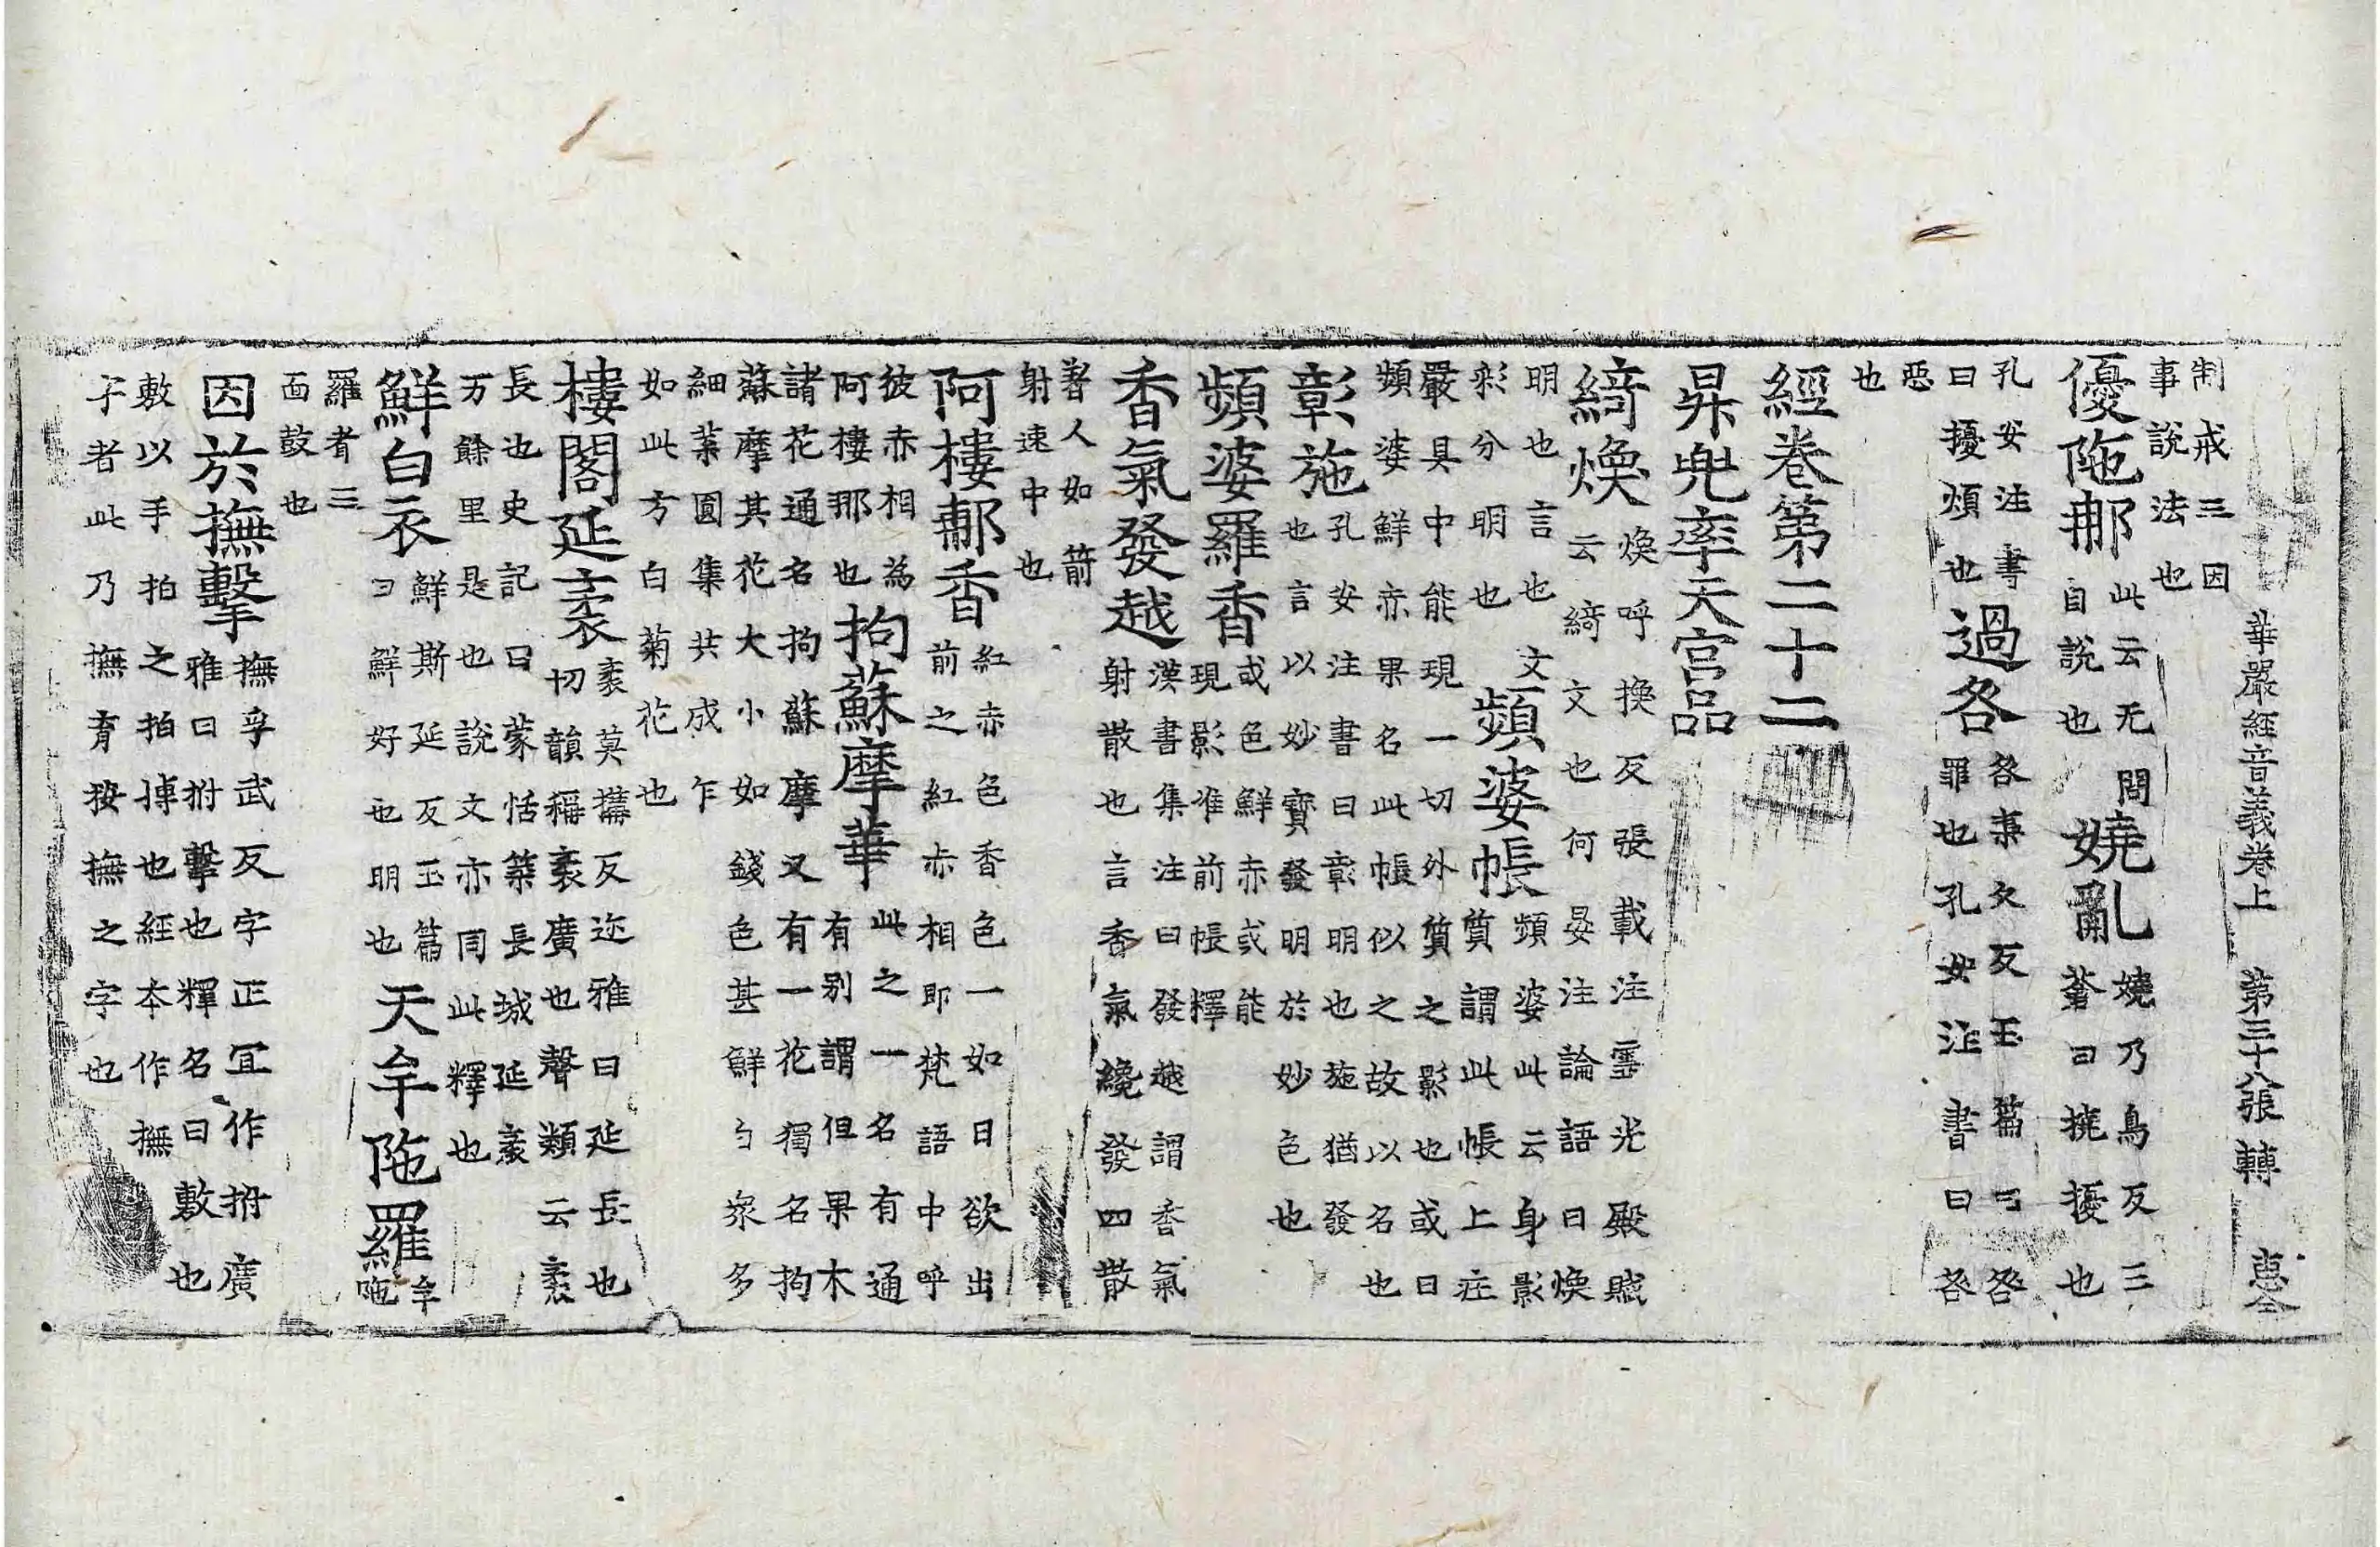 華嚴經音義卷上　第三十八張　轉　惠仝
制戒三因
事說法也
優陁那
此云无問
自說也
嬈亂
嬈乃鳥反三
蒼曰撓擾也
孔安注書
曰擾煩也
過咎
咎衷久反玉篇曰咎
罪也孔安注書曰咎
惡
也
經卷第二十二
昇兜率天宮品
綺煥
煥呼換反張載注霊光殿賦
云綺文也何晏注論語曰煥
明也言也文
彩分明也
頻婆帳
頻婆此云身影
質謂此帳上莊
嚴具中能現一切外質之影也或曰
頻婆鮮赤果名此帳似之故以名也
彰施
孔安注書曰彰明也施猶發
也言以妙寶發明於妙色也
頻婆羅香
或色鮮赤或能
現影准前帳釋
香氣發越
漢書集注曰發越謂香氣
射散也言香氣纔發四散
著人如箭
射速中也
阿樓郍香
紅赤色香色一如日欲出
前之紅赤相即梵語中呼
彼赤相為
阿樓那也
拘蘇摩華
此之一名有通
有別謂但果木
諸花通名拘蘇摩又有一花獨名拘
蘇摩其花大小如錢色甚鮮白衆多
細葉圓集共成乍
如此方白菊花也
樓閣延袤
袤莫搆反迩雅曰延長也
切韻稱袤廣也聲類云袤
長也史記曰蒙恬築長城延袤
万餘里是也說文亦同此釋也
鮮白衣
鮮斯延反玉篇
曰鮮好也明也
天牟陁羅
牟
陁
羅者三
面鼓也
因於撫擊
撫孚武反字正冝作拊廣
雅曰拊擊也釋名曰敷也
敷以手拍之拍搏也經本作撫
字者此乃撫育按撫之字也